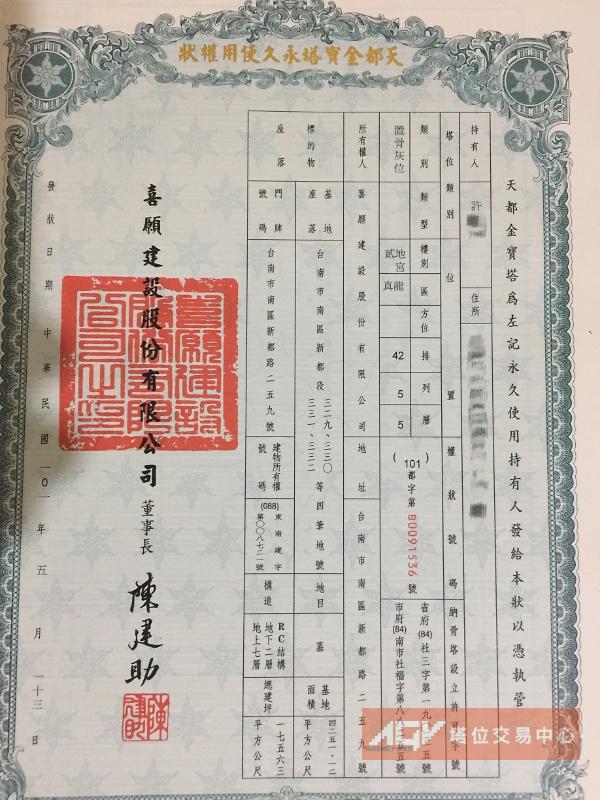 天都金寶塔永久使用權狀
天都金寶塔為左記永久使用持有人發給本狀以憑執管
持有人 許
住所
塔位類別
位置
權狀號碼
納骨塔設立許可字號
類別 類型 樓別 區 方位 排 列 層
置骨灰位
地宮貳
龍真
42
5
5
(101)都字第B0091536號
省府(84)社三字第一九
市府(84)南市社福字第八八
所有權人
喜願建設股份有限公司
地址
台南市南區新都路二五九號
標的物座落
基地座落
台南市南區新都段三二九、三三〇、三三一、三三二等四筆地號
地目
墓
基地面積
四二五一.一二平方公尺
門牌號碼
台南市南區新都路二五九號
建物所有權號碼
(088)東南建字第〇〇八七二一號
構造
RC結構
地下二層
地上七層
總建坪
一七五六三平方公尺
喜願建設股份有限公司
董事長 陳建助
發狀日期中華民國一〇一年五月一十三日
AGV 塔位交易中心